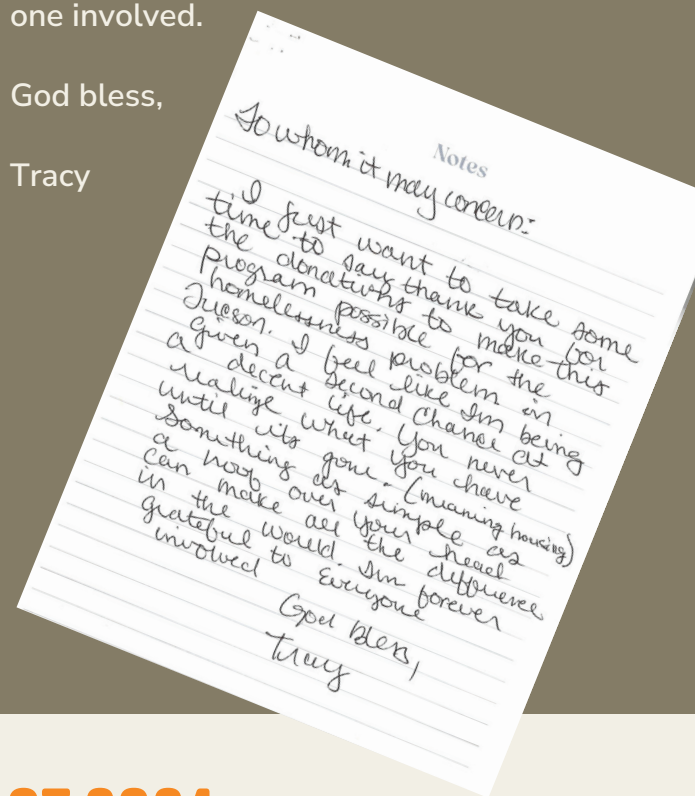 one involved.
God bless,
Tracy
Notes
To whom it may concern:
I just want to take some
time to say thank you for
the donations to make this
program possible for the
homelessness problem in
Tucson. I feel like Im being
given a second chance at
a decent life. You never
realize what you have
until its gone. (meaning housing)
Something as simple as
a roof over your head
can make all the difference
in the world. Im forever
grateful to Everyone
involved
God bless,
Tracy